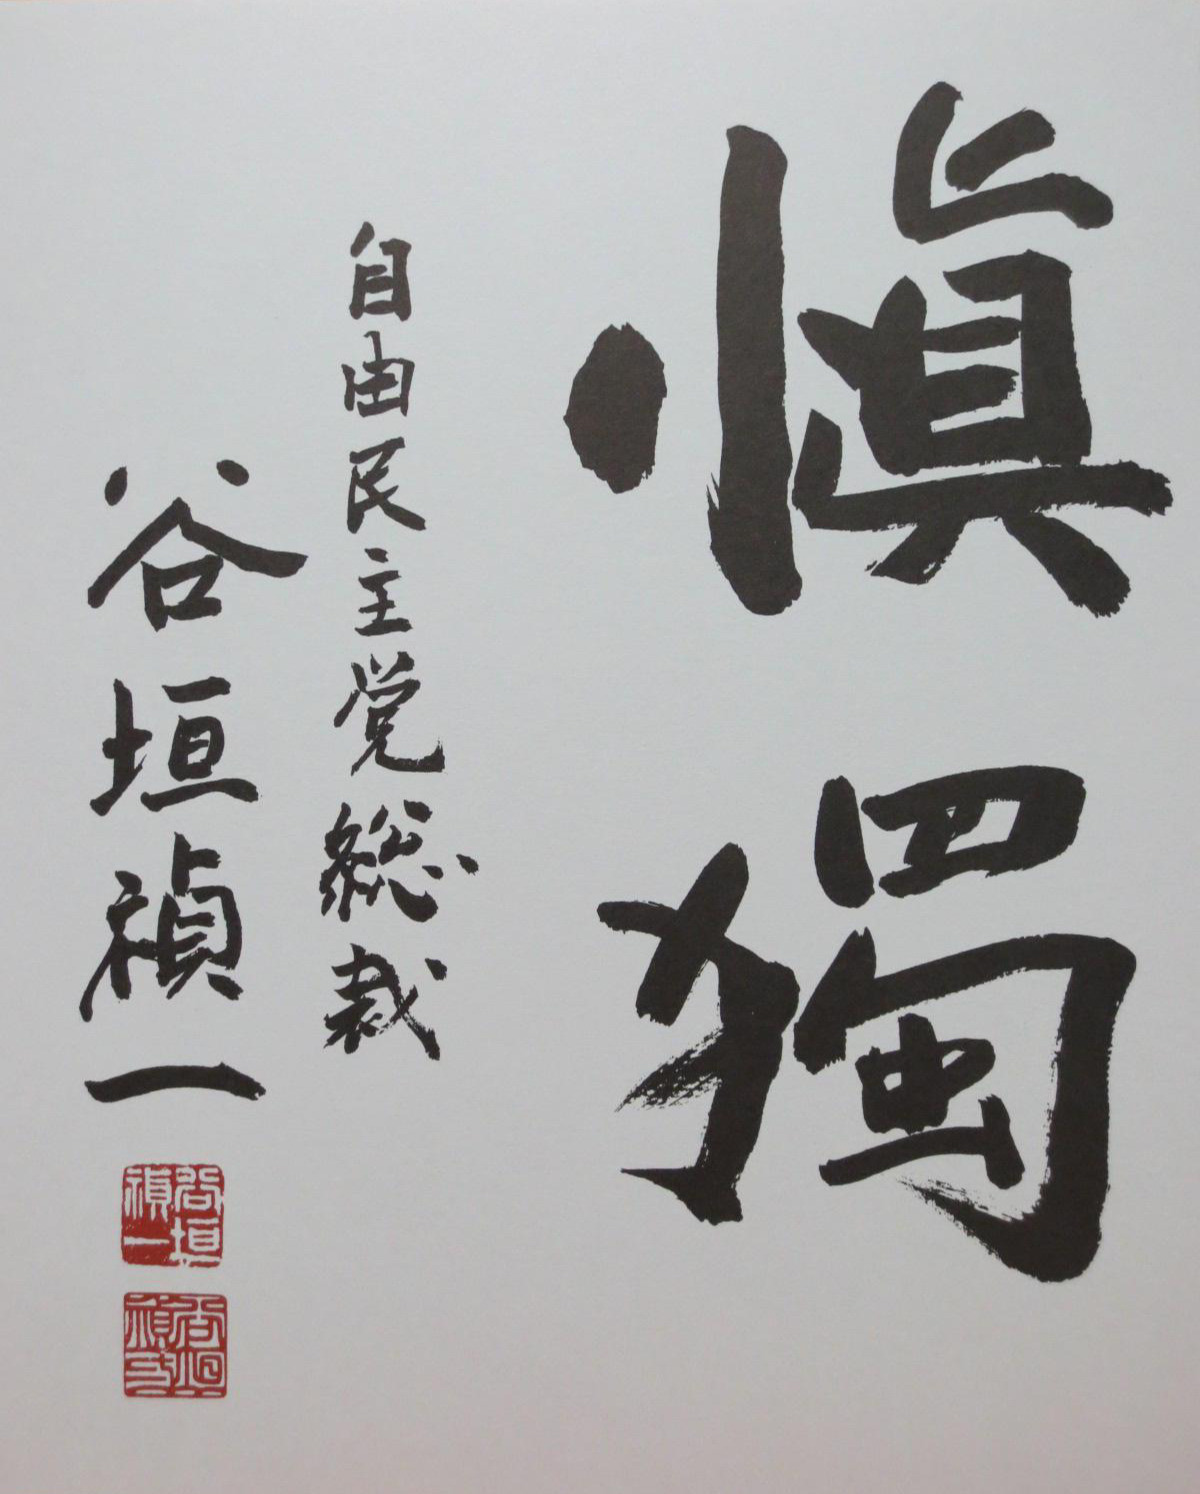 愼獨
自由民主党総裁
谷垣禎一
谷垣
禎一